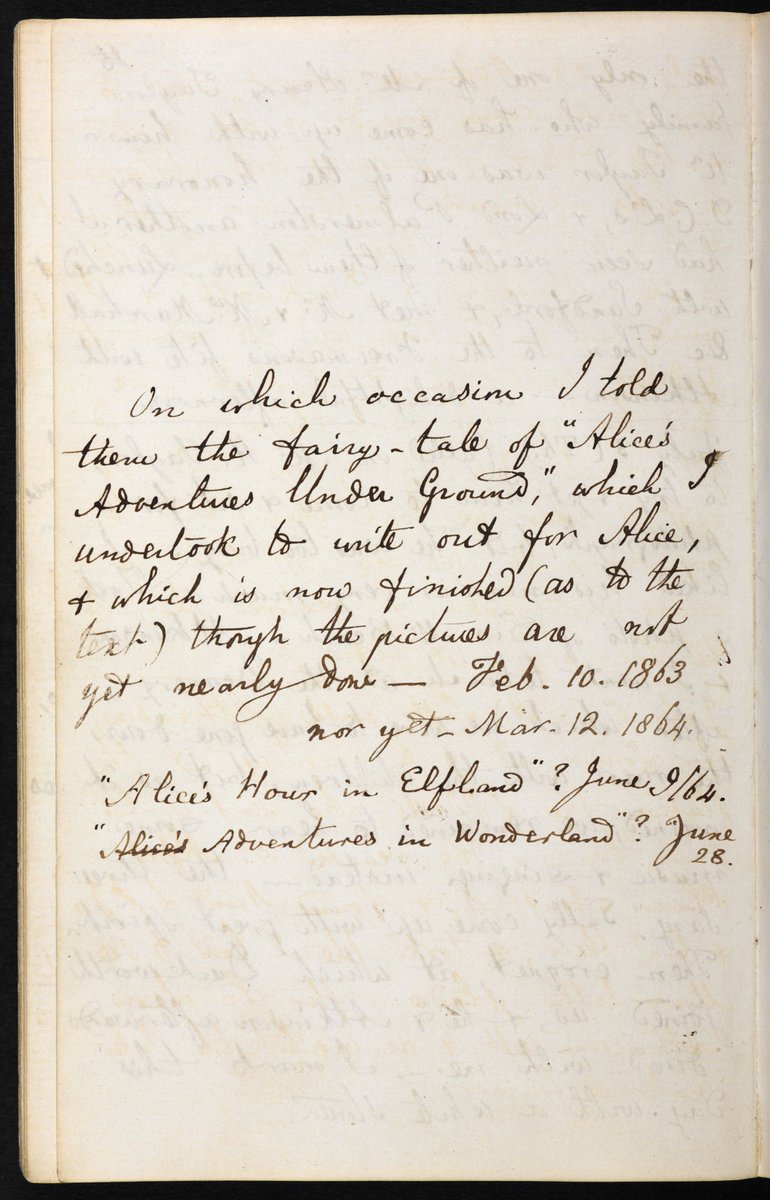 On which occasion I told
them the fairy-tale of "Alice's
Adventures Under Ground," which I
undertook to write out for Alice,
+ which is now finished (as to the
text) though the pictures are not
yet nearly done — Feb. 10. 1863
nor yet – Mar. 12. 1864.
"Alice's Hour in Elfland"? June 9/64.
"Alice's Adventures in Wonderland"? June
28.